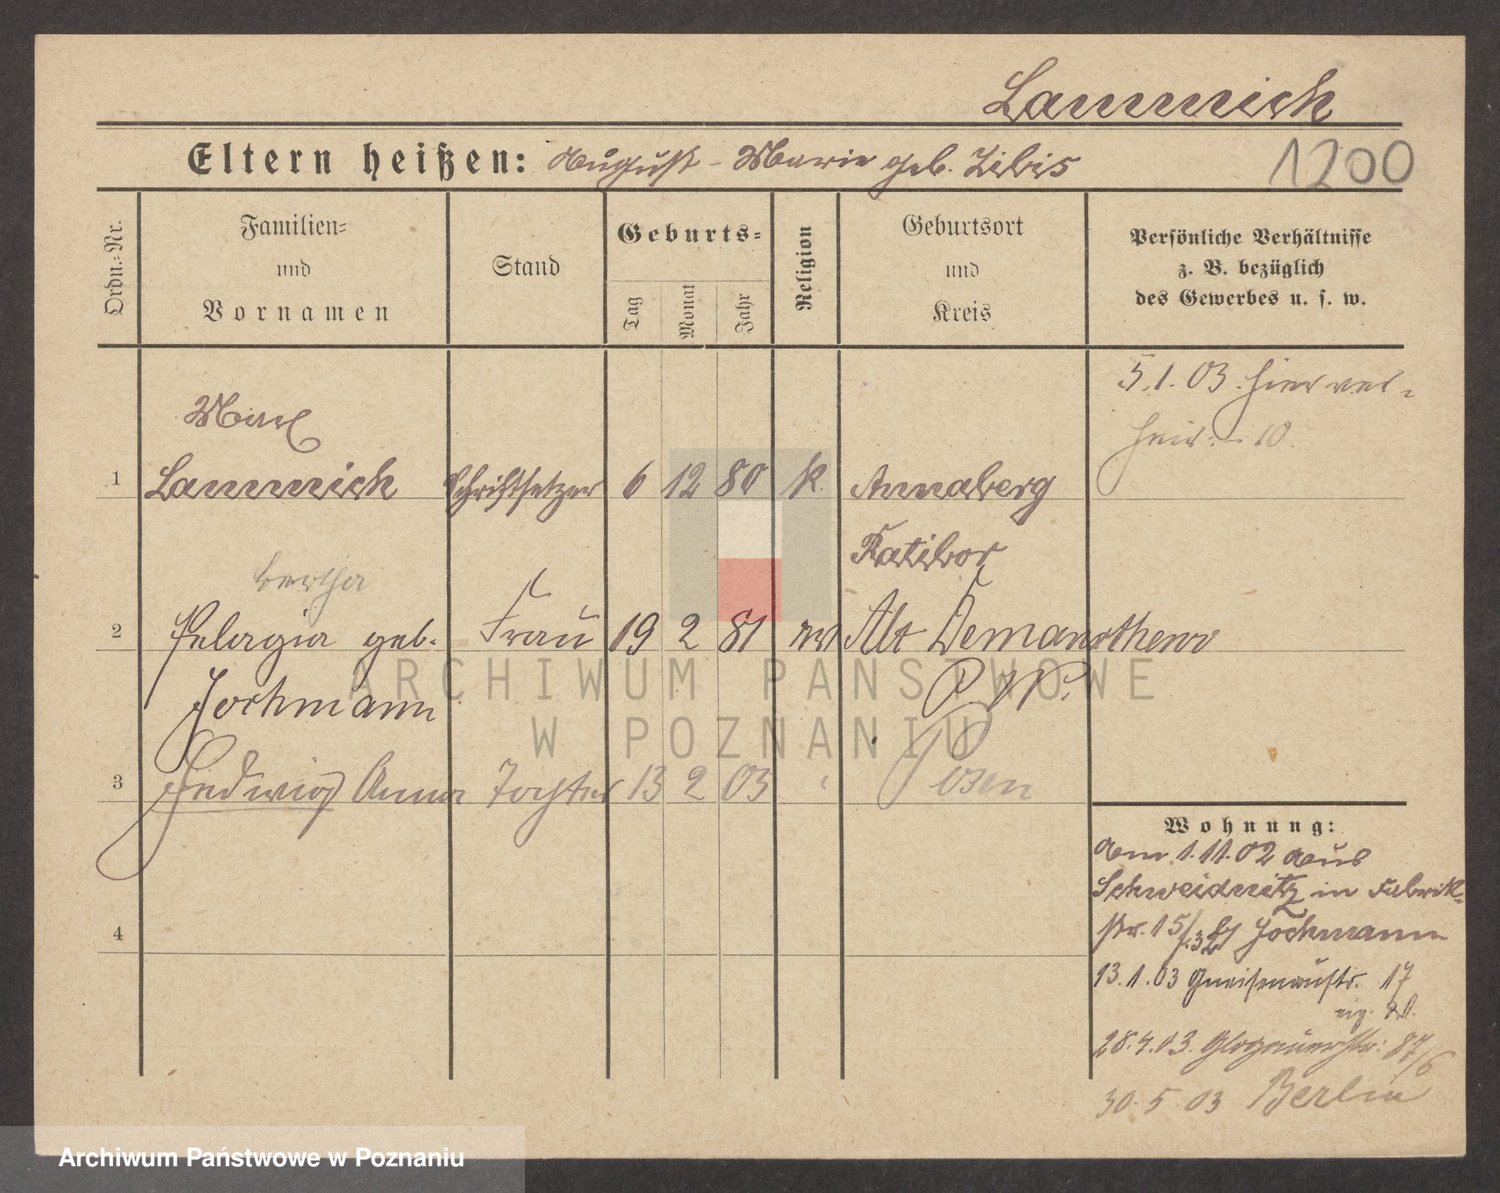 Lammich
Eltern heißen: August - Marie geb. Libis
1200
Ordn.-Nr.
Familien-
und
Vornamen
Stand
Geburts-
Tag
Monat
Jahr
Religion
Geburtsort
und
Kreis
Persönliche Verhältnisse
z. B. bezüglich
des Gewerbes u. s. w.
5.1.03. hier ver-
heir. 10.
Max
1 Lammich Schriftsetzer 6 12 80 k. Annaberg
Ratibor
bertha
2 Pelagia geb. Frau 19 2 81 Alt
Jochmann
3 Hedwig Anna Tochter 13 2 03 Posen
4
Wohnung:
am 1.11.02 aus
Schweidnitz in Fabrik-
str. 15/ Jochmann
13.1.03 Gneisenaustr. 17
eig.
28.4.03. Glogauerstr. 87/6
30.5.03 Berlin
ARCHIWUM PAŃSTWOWE
W POZNANIU
Archiwum Państwowe w Poznaniu